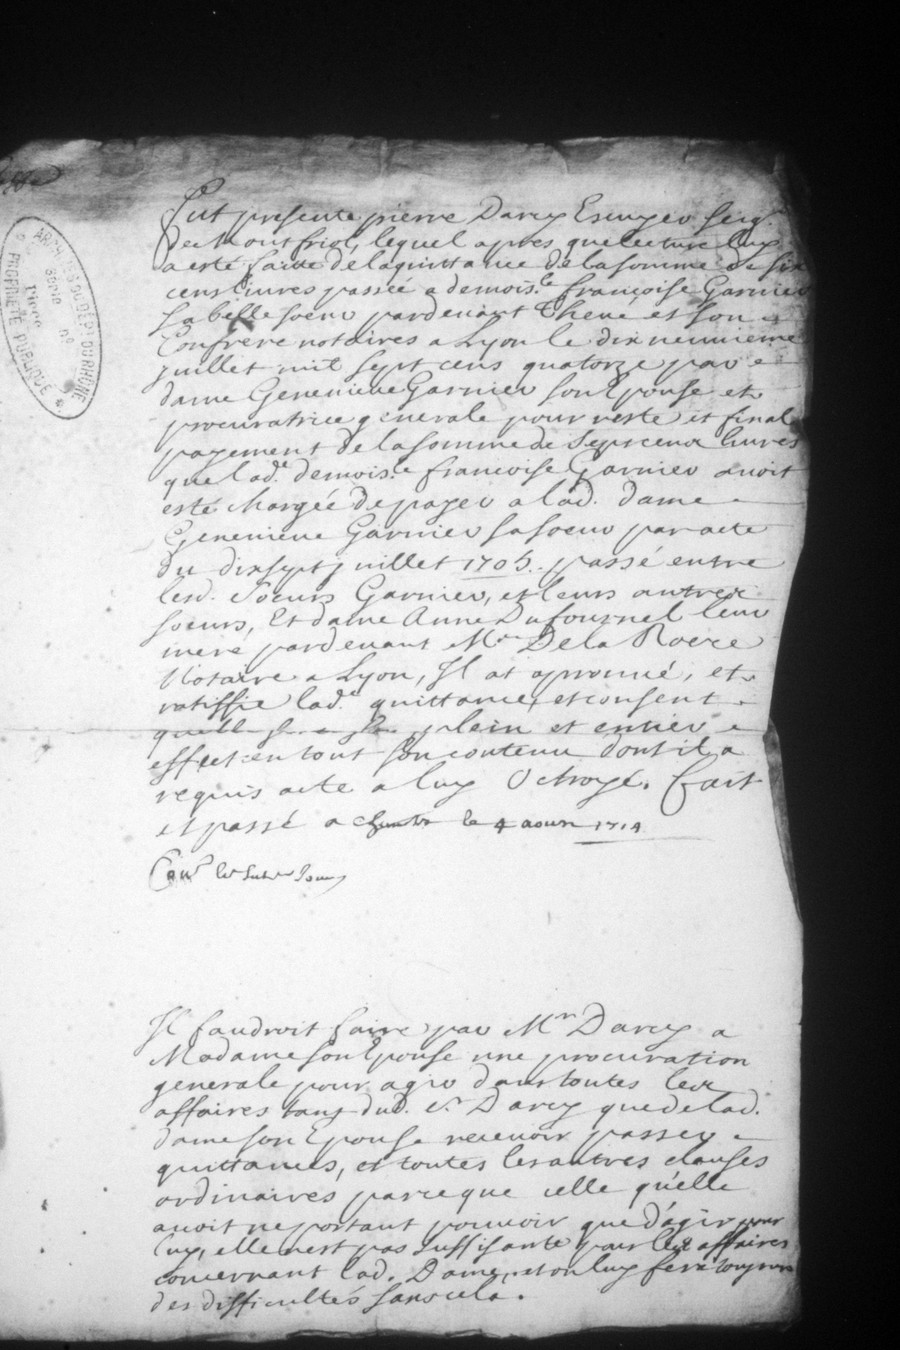 Fut presente pierre Darcy Escuyer seigr.
De Montfriol, lequel apres que lecture luy
a esté faitte de la quittance de la somme de six
cens livres passée a demoislle. françoise Garnier
sa belle soeur pardevant Thevé et son
Confrere notaires a Lyon le dix neuvieme
juillet mil sept cens quatorze par
dame Genevieve Garnier son Epouse et
procuratrice generale pour reste et final
payement de la somme de Sept cens livres
que lade. demoislle. francoise Garnier avoit
esté chargée de payer a lad. dame
Genevieve Garnier sa soeur par acte
du dix sept juillet 1705. passé entre
lesd. Soeurs Garnier, et leurs autres
soeurs, Et dame Anne Dufournel leur
mere pardevant Me De la Roere
Notaire a Lyon, Il at aprouvé, et
ratiffie lade. quittance, et consent
quelle plein et entier
effect en tout son contenu dont il a
requis acte a luy Octroyé. Fait
et passé a le 4 aoust 1714
Il faudroit faire par Mr Darcy a
Madame son Epouse une procuration
generale pour agir dans toutes les
affaires tant dud. sr. Darcy que de lad.
dame son Epouse recevoir passer
quittances, et toutes les autres clauses
ordinaires parceque celle qu'elle
avoit ne portant pouvoir que d'agir pour
luy, elle n'est pas suffisante pour les affaires
concernant lad. Dame, et on luy feré toujours
des difficultés sans cela.
ARCHIVES DU DEPT DU RHONE
Série
Pièce
no
PROPRIÉTÉ PUBLIQUE